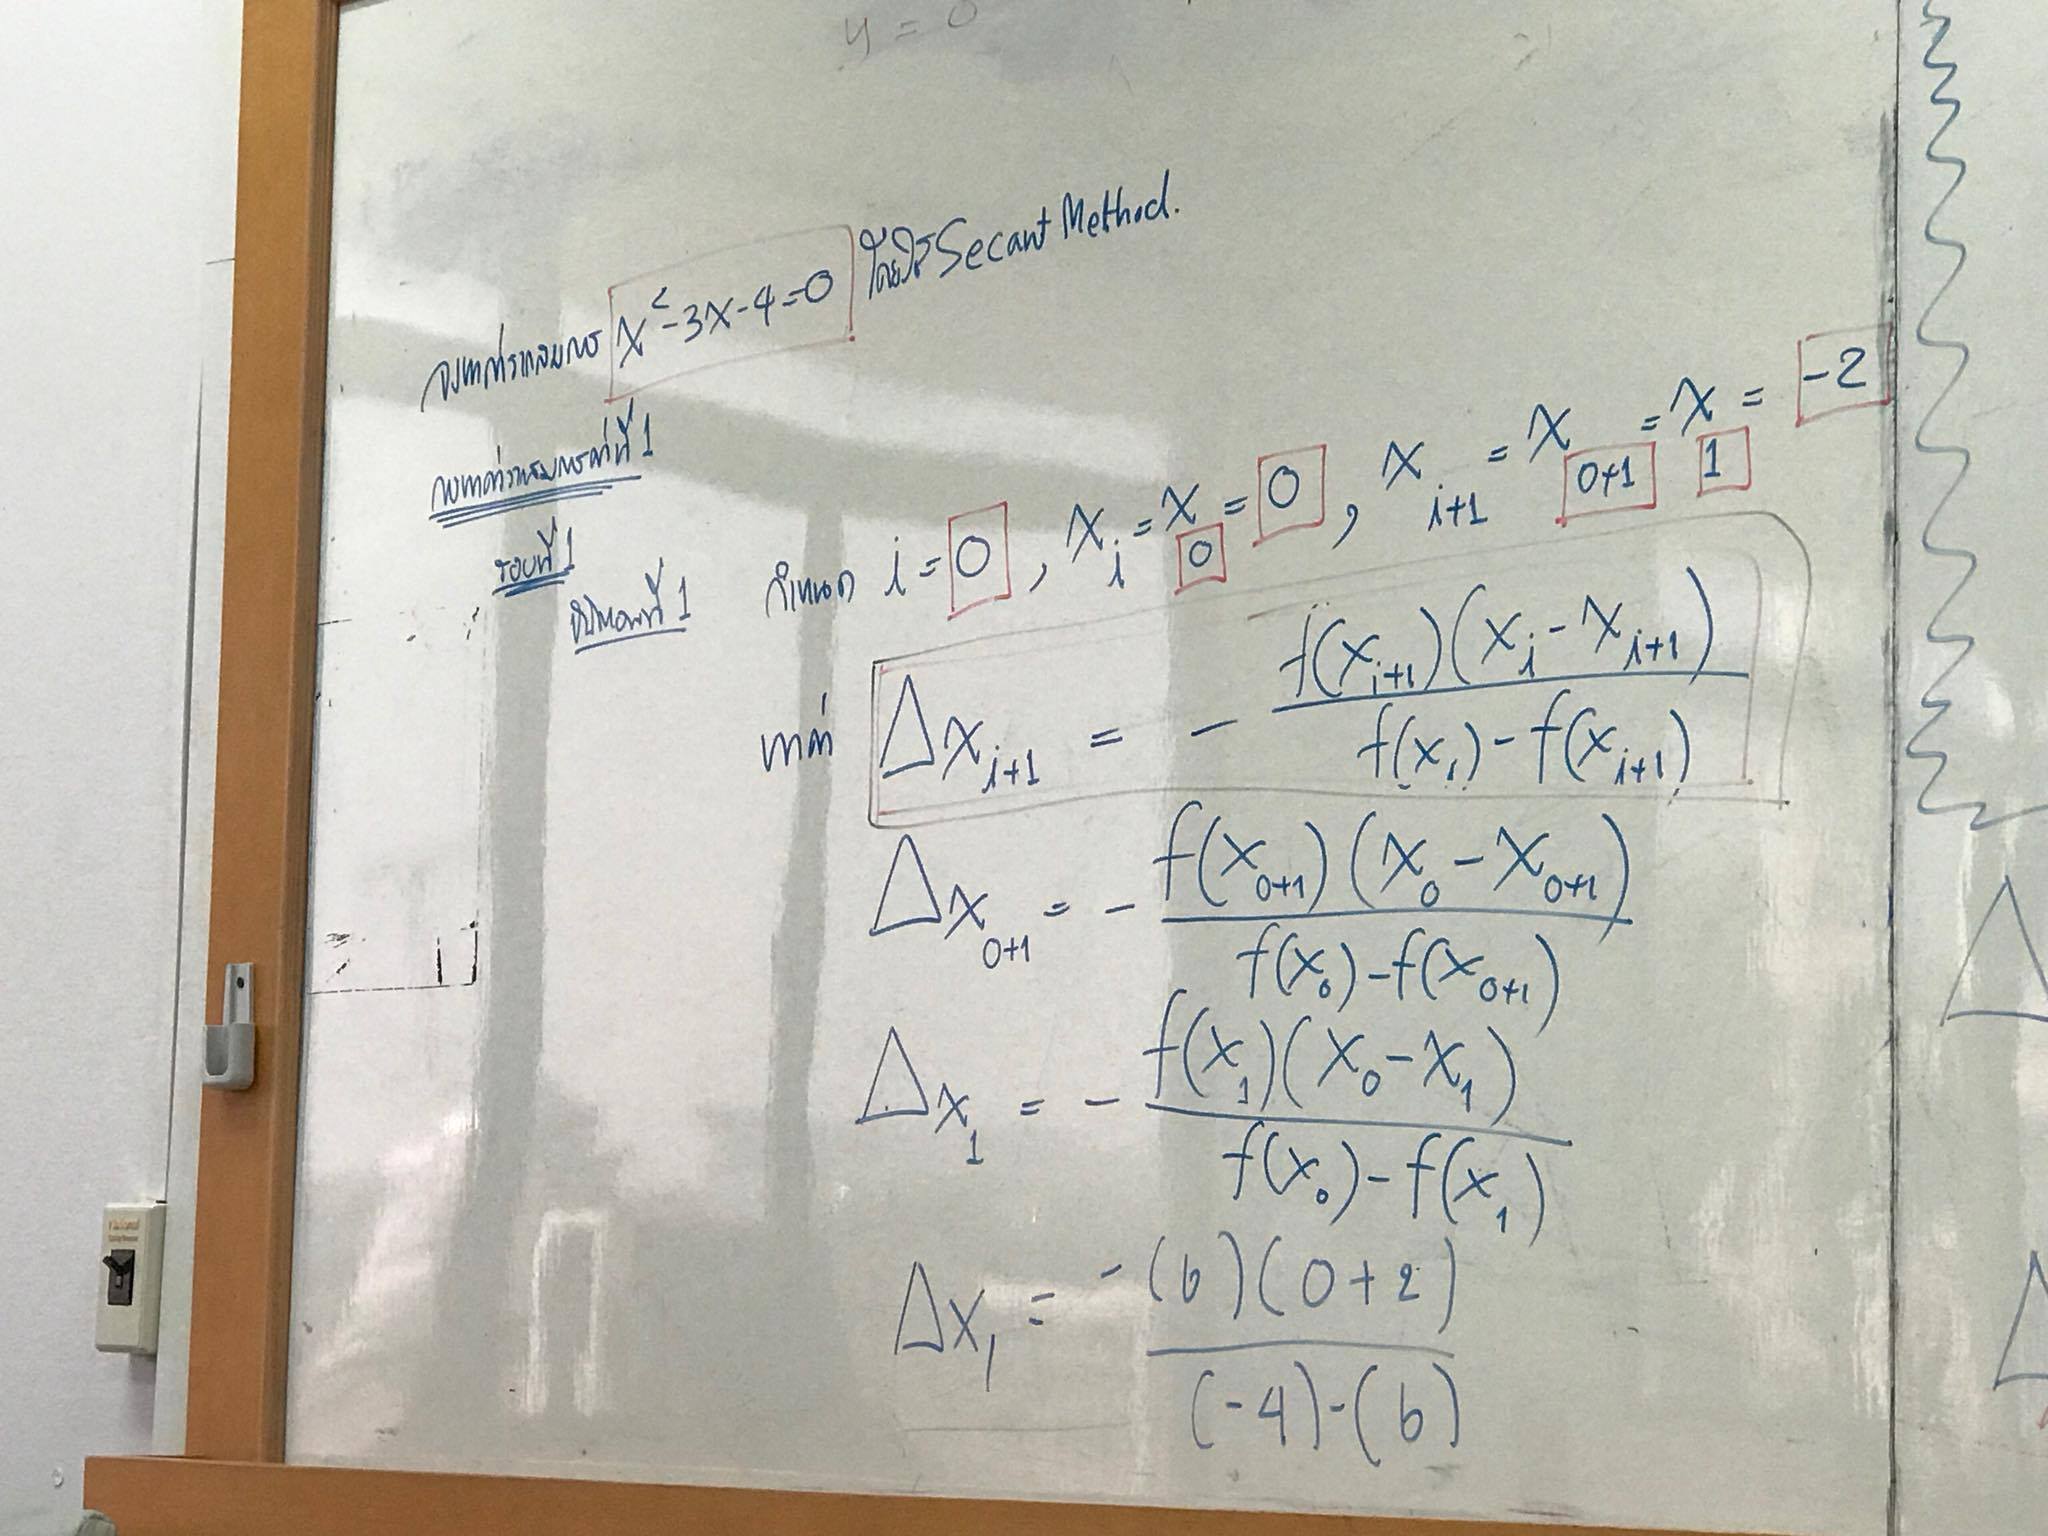 y = 0
จงหาค่ารากสมการ x² - 3x - 4 = 0 โดยใช้ Secant Method.
จงหาค่ารากสมการค่าที่ 1
รอบที่ 1
ขั้นตอนที่ 1 กำหนด i = 0 , xᵢ = x₀ = 0 , xᵢ₊₁ = x₀₊₁ = x₁ = -2
หาค่า Δxᵢ₊₁ = - f(xᵢ₊₁)(xᵢ - xᵢ₊₁) / f(xᵢ) - f(xᵢ₊₁)
Δx₀₊₁ = - f(x₀₊₁)(x₀ - x₀₊₁) / f(x₀) - f(x₀₊₁)
Δx₁ = - f(x₁)(x₀ - x₁) / f(x₀) - f(x₁)
Δx₁ = -(6)(0+2) / (-4)-(6)